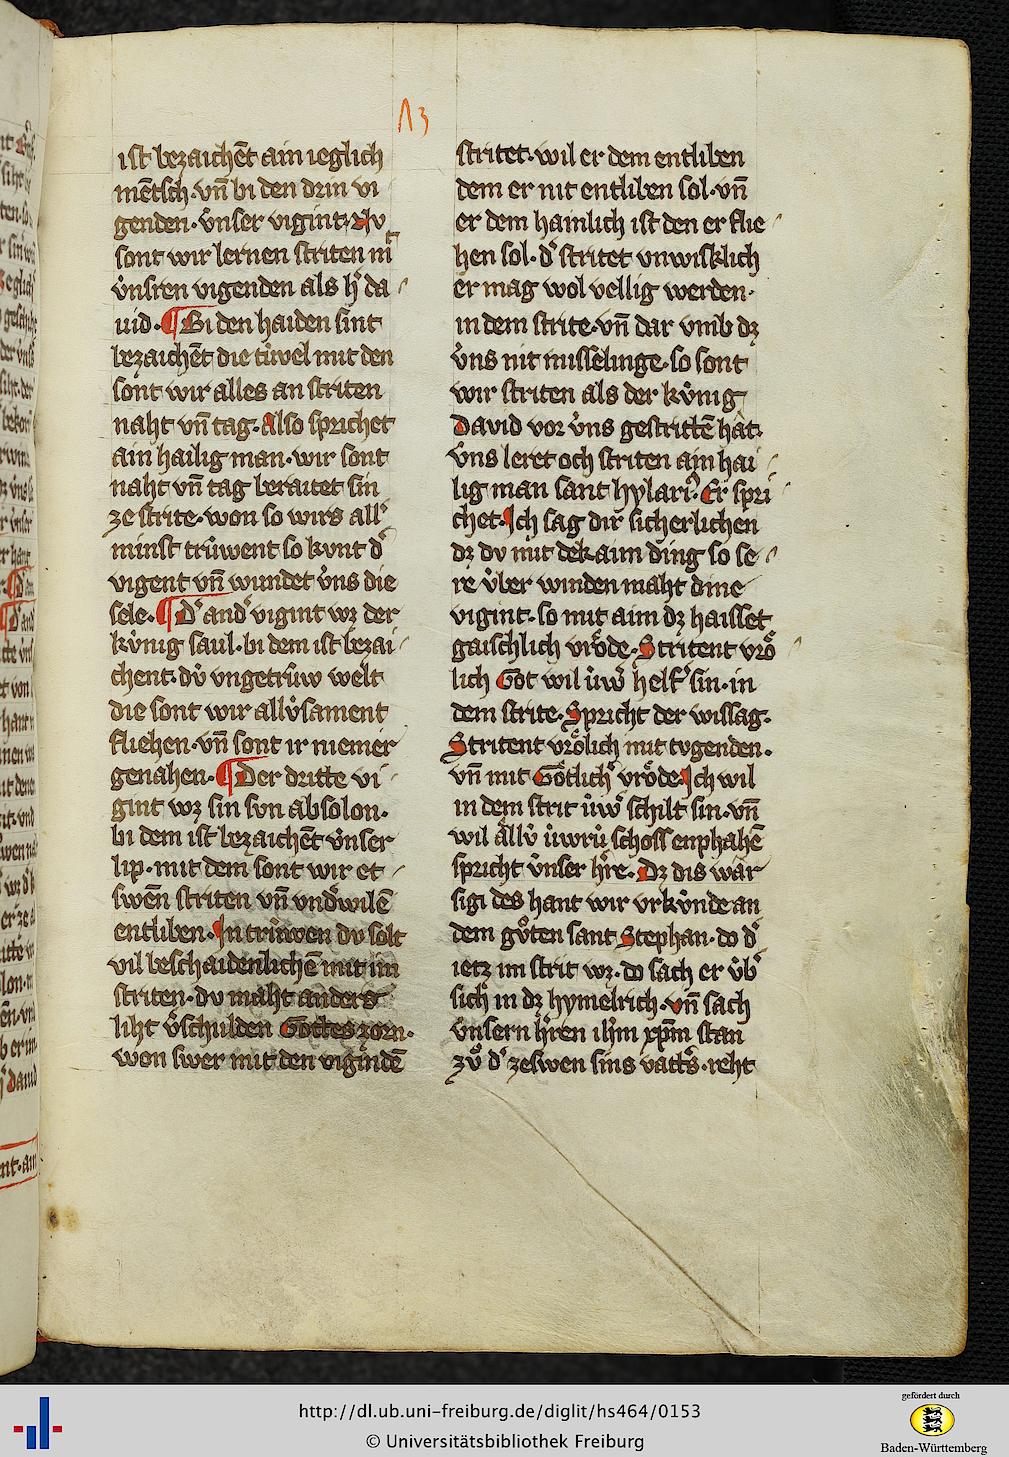 13
ist bezaichēt ain ieglich
mētsch · vn̄ bi den drin vi
genden · v̊nser vigint · Nv
sont wir lernen striten mͭ
v̊nsren vigenden als hͬ da
uid · ¶ Bi den haiden sint
bezaichēt die tùvel mit den
sont wir alles an striten
naht vn̄ tag · Also sprichet
ain hailig man · wir sont
naht vn̄ tag beraitet sin
ze strite · won so wirs all͛
minst trùwent so kvnt d͛
vigent vn̄ wundet v̊ns die
sele · ¶ D͛ and͛ vigint wz der
kv̊nig saul · bi dem ist bezai
chent · dv̊ vngetrùw welt
die sont wir allv̊sament
fliehen · vn̄ sont ir niemer
genahen · ¶ Der dritte vi
gint wz sin svn absolon ·
bi dem ist bezaichēt v̊nser
lip · mit dem sont wir et
swēn striten vn̄ vnd͛wilē
entliben · In trùwen dv solt
vil beschaidenlichē mit im
striten · dv maht anders
liht v͛schulden Gottes zorn ·
won swer mit den vigindē
stritet · wil er dem entliben
dem er nit entliben sol · vn̄
er dem hainlich ist den er flie
hen sol · d͛ stritet vnwisklich
er mag wol vellig werden ·
in dem strite · vn̄ dar vmb dz
v̊ns nit misselinge · so sont
wir striten als der kv̊nig
David vor v̊ns gestrittē hat ·
v̊ns leret och striten ain hai
lig man sant hylari᷒ · Er spri
chet · Ich sag dir sicherlichen
dz dv mit dekaim ding so se
re v̊ber winden maht dine
vigint · so mit aim dz haisset
gaischlich vrȫde · Stritent vrö
lich Got wil ùw͛ helf͛ sin · in
dem strite · Spricht der wissag ·
Stritent vrölich mit tvgenden ·
vn̄ mit Götlich͛ vröde · Ich wil
in dem strit ùw͛ schilt sin · vn̄
wil ällv̊ ùwrù schoss enphahē
spricht v̊nser h͛re · Dz dis wär
sigi des hant wir vrkv̊nde an
dem gůten sant Stephan · do d͛
ietz im strit wz · do sach er v̊b͛
sich in dz hymelrich · vn̄ sach
v̊nsern h͛ren ih̄m xp̄m stan
zů d͛ zeswen sins vatt͛s · reht
http://dl.ub.uni-freiburg.de/diglit/hs464/0153
© Universitätsbibliothek Freiburg
gefördert durch
Baden-Württemberg